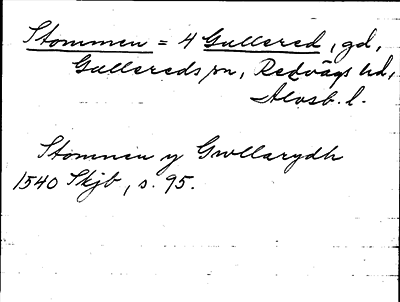 Stommen = 4 Gullered, gd,
Gullereds sn, Redvägs hd,
Älvsb. l.
Stomnen y Gwllarydh
1540 Skjb, s. 95.